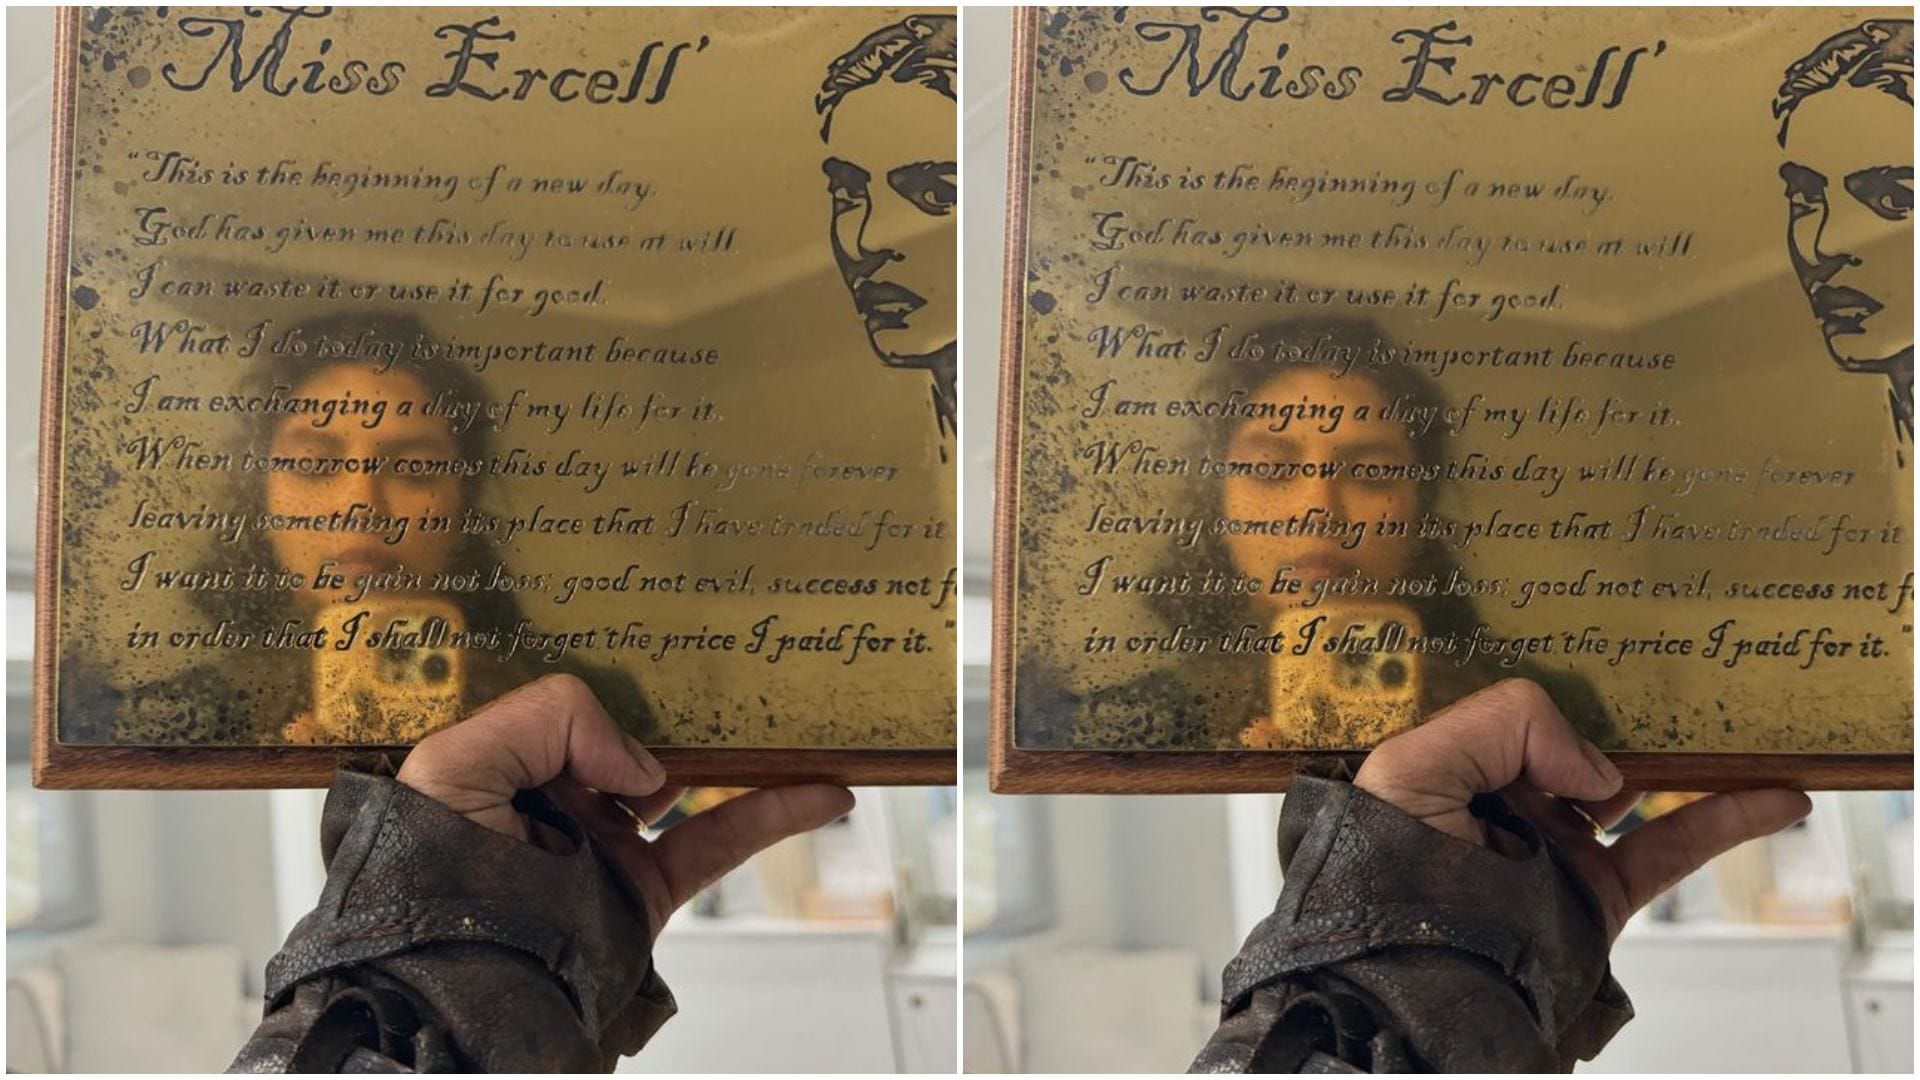 'Miss Ercell'
"This is the beginning of a new day.
God has given me this day to use at will.
I can waste it or use it for good.
What I do today is important because
I am exchanging a day of my life for it.
When tomorrow comes this day will be gone forever
leaving something in its place that I have traded for it
I want it to be gain not loss; good not evil, success not f
in order that I shall not forget the price I paid for it."
'Miss Ercell'
"This is the beginning of a new day.
God has given me this day to use at will.
I can waste it or use it for good.
What I do today is important because
I am exchanging a day of my life for it.
When tomorrow comes this day will be gone forever
leaving something in its place that I have traded for it
I want it to be gain not loss; good not evil, success not f
in order that I shall not forget the price I paid for it."